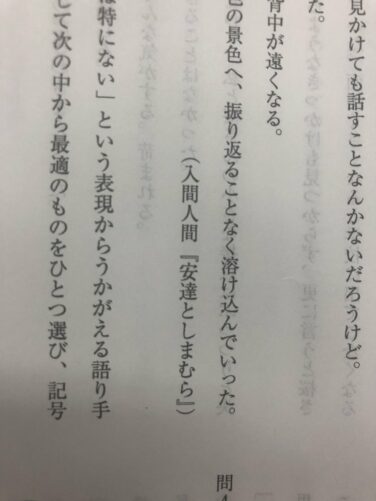 見かけても話すことなんかないだろうけど。
た。
背中が遠くなる。
色の景色へ、振り返ることなく溶け込んでいった。
(入間人間『安達としまむら』)
問4
は特にない」という表現からうかがえる語り手
して次の中から最適のものをひとつ選び、記号